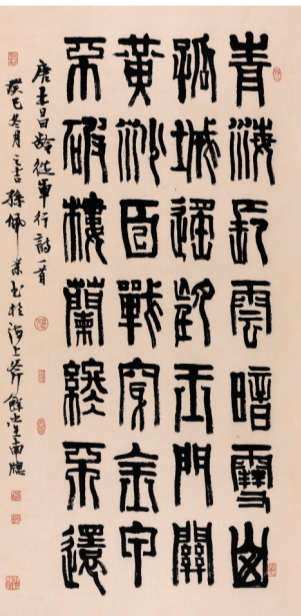 青海長雲暗雪山
孤城遙望玉門關
黃沙百戰穿金甲
不破樓蘭終不還
唐王昌齡從軍行詩一首
癸巳冬月之吉 書於海上 餘堂南牕